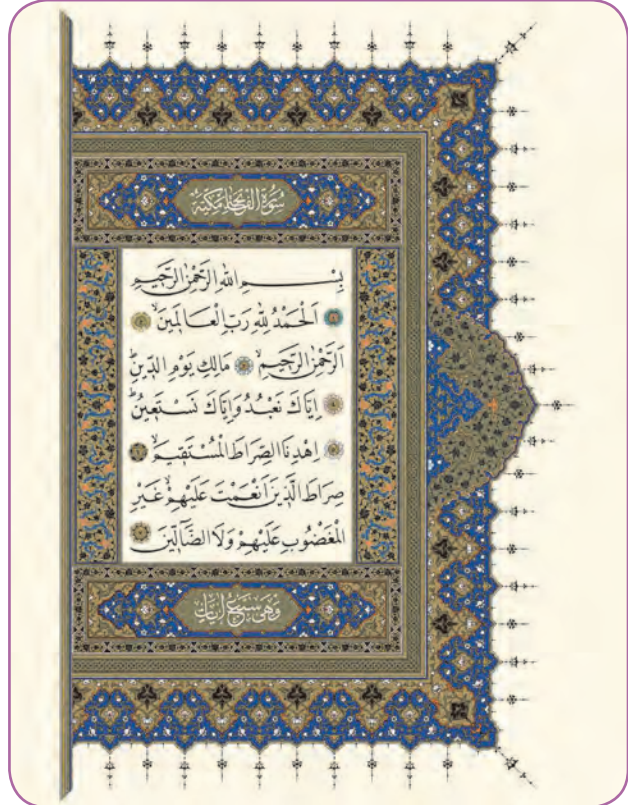 سُورَةُ الْفَاتِحَةِ مَكِّيَّةٌ
بِسْمِ اللّٰهِ الرَّحْمٰنِ الرَّحٖيمِ
اَلْحَمْدُ لِلّٰهِ رَبِّ الْعَالَمٖينَۙ
اَلرَّحْمٰنِ الرَّحٖيمِۙ مَالِكِ يَوْمِ الدّٖينِؕ
اِيَّاكَ نَعْبُدُ وَاِيَّاكَ نَسْتَعٖينُؕ
اِهْدِنَا الصِّرَاطَ الْمُسْتَقٖيمَۙ
صِرَاطَ الَّذٖينَ اَنْعَمْتَ عَلَيْهِمْۙ غَيْرِ
الْمَغْضُوبِ عَلَيْهِمْ وَلَا الضَّٓالّٖينَ
وَهِيَ سَبْعُ اٰيَاتٍ